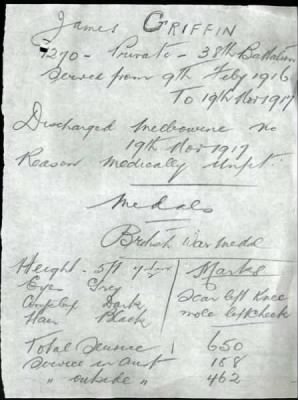 James GRIFFIN
Private - 38th Battalion
Served from 9th Feby 1916
To 19th Nov 1917
Discharged Melbourne
19th Nov 1917
Reason Medically Unfit
Medals
British War Medal
Height - 5ft
Eyes Grey
Complex Dark
Hair Black
Marks
Scar left Knee
mole left cheek
Total Service 650
Service in Aust 188
" outside " 462